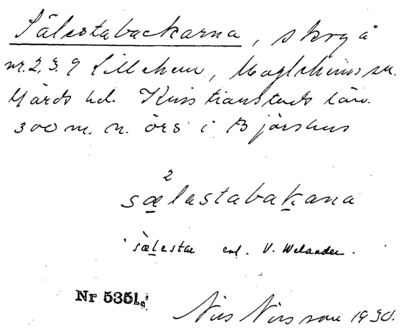 Sälestabackarna, skog å
nr. 2, 3, 9 Lillehem, Maglehems sn.
Gärds hd. Kristianstads län.
300 m. n. ö.
2
sælastabakana
sælestar enl. V. Welander.
Nr 5351
Nils Nilsson 1930.